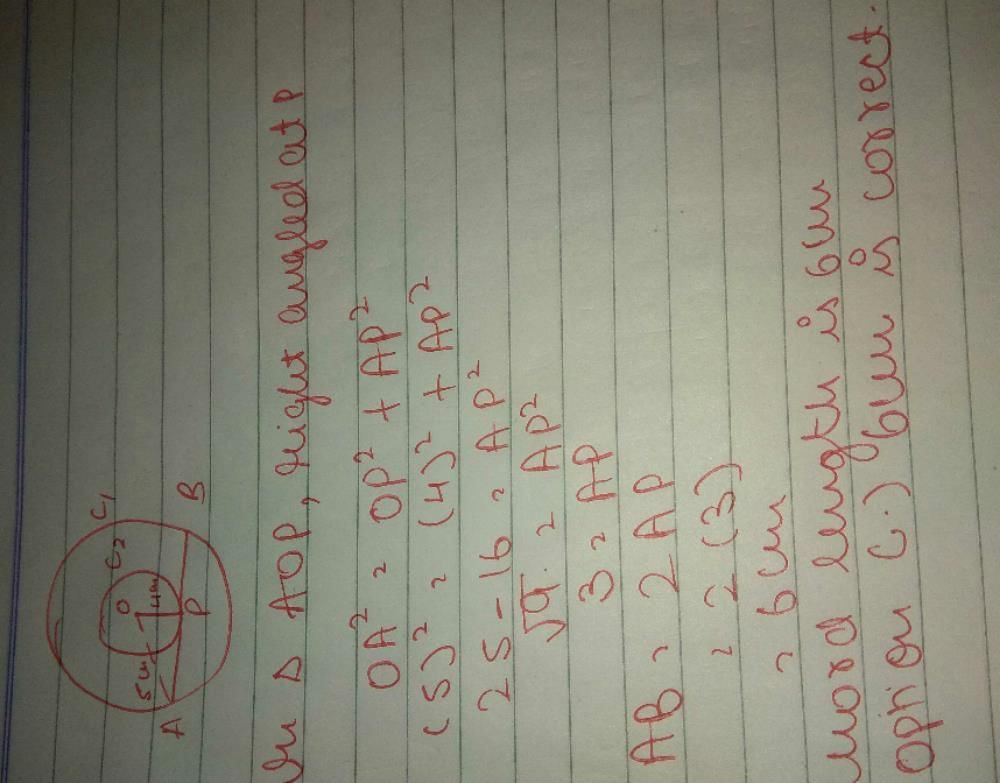 C1
C2
O
5cm
4cm
A
P
B
In Δ AOP, right angled at P
OA² = OP² + AP²
(5)² = (4)² + AP²
25-16 = AP²
√9 = AP²
3 = AP
AB = 2AP
= 2(3)
= 6cm
chord length is 6cm
option c.) 6cm is correct.